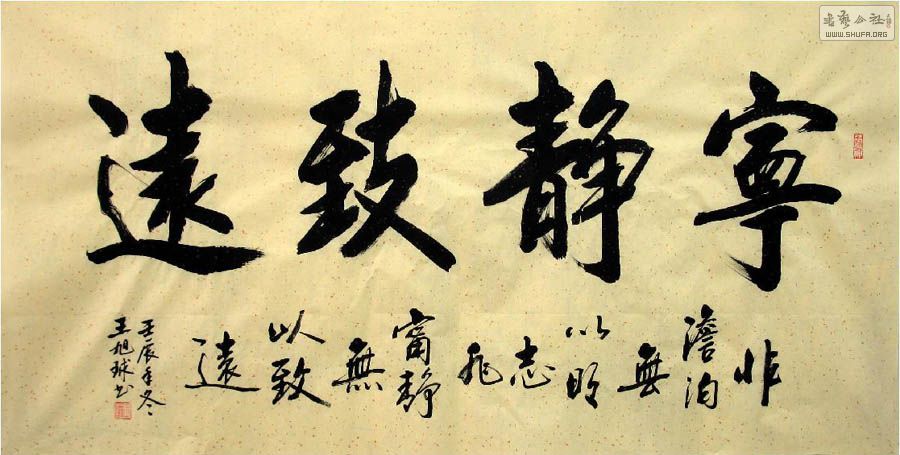 寧静致遠
非
澹泊
無
以明
志
非
甯静
無
以致
遠
壬辰年冬
王旭球书
书艺公社
WWW.SHUFA.ORG